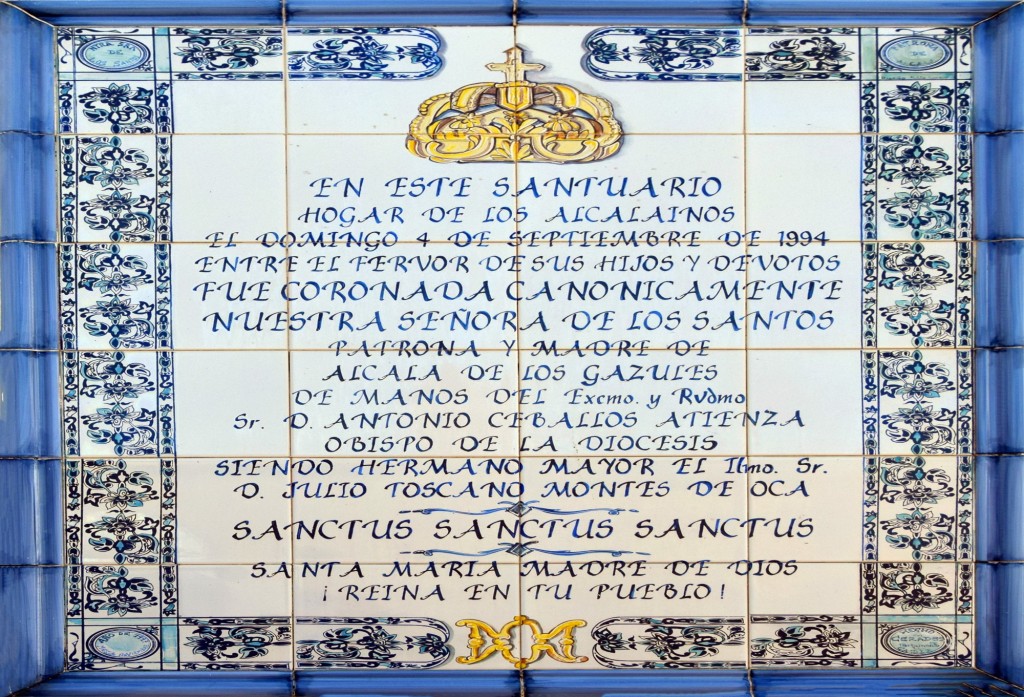 NTRA SRA DE LOS SANTOS
EN ESTE SANTUARIO
HOGAR DE LOS ALCALAINOS
EL DOMINGO 4 DE SEPTIEMBRE DE 1994
ENTRE EL FERVOR DE SUS HIJOS Y DEVOTOS
FUE CORONADA CANONICAMENTE
NUESTRA SEÑORA DE LOS SANTOS
PATRONA Y MADRE DE
ALCALA DE LOS GAZULES
DE MANOS DEL Excmo. y Rvdmo
Sr. D. ANTONIO CEBALLOS ATIENZA
OBISPO DE LA DIOCESIS
SIENDO HERMANO MAYOR EL Ilmo. Sr.
D. JULIO TOSCANO MONTES DE OCA
SANCTUS SANCTUS SANCTUS
SANTA MARIA MADRE DE DIOS
¡REINA EN TU PUEBLO!